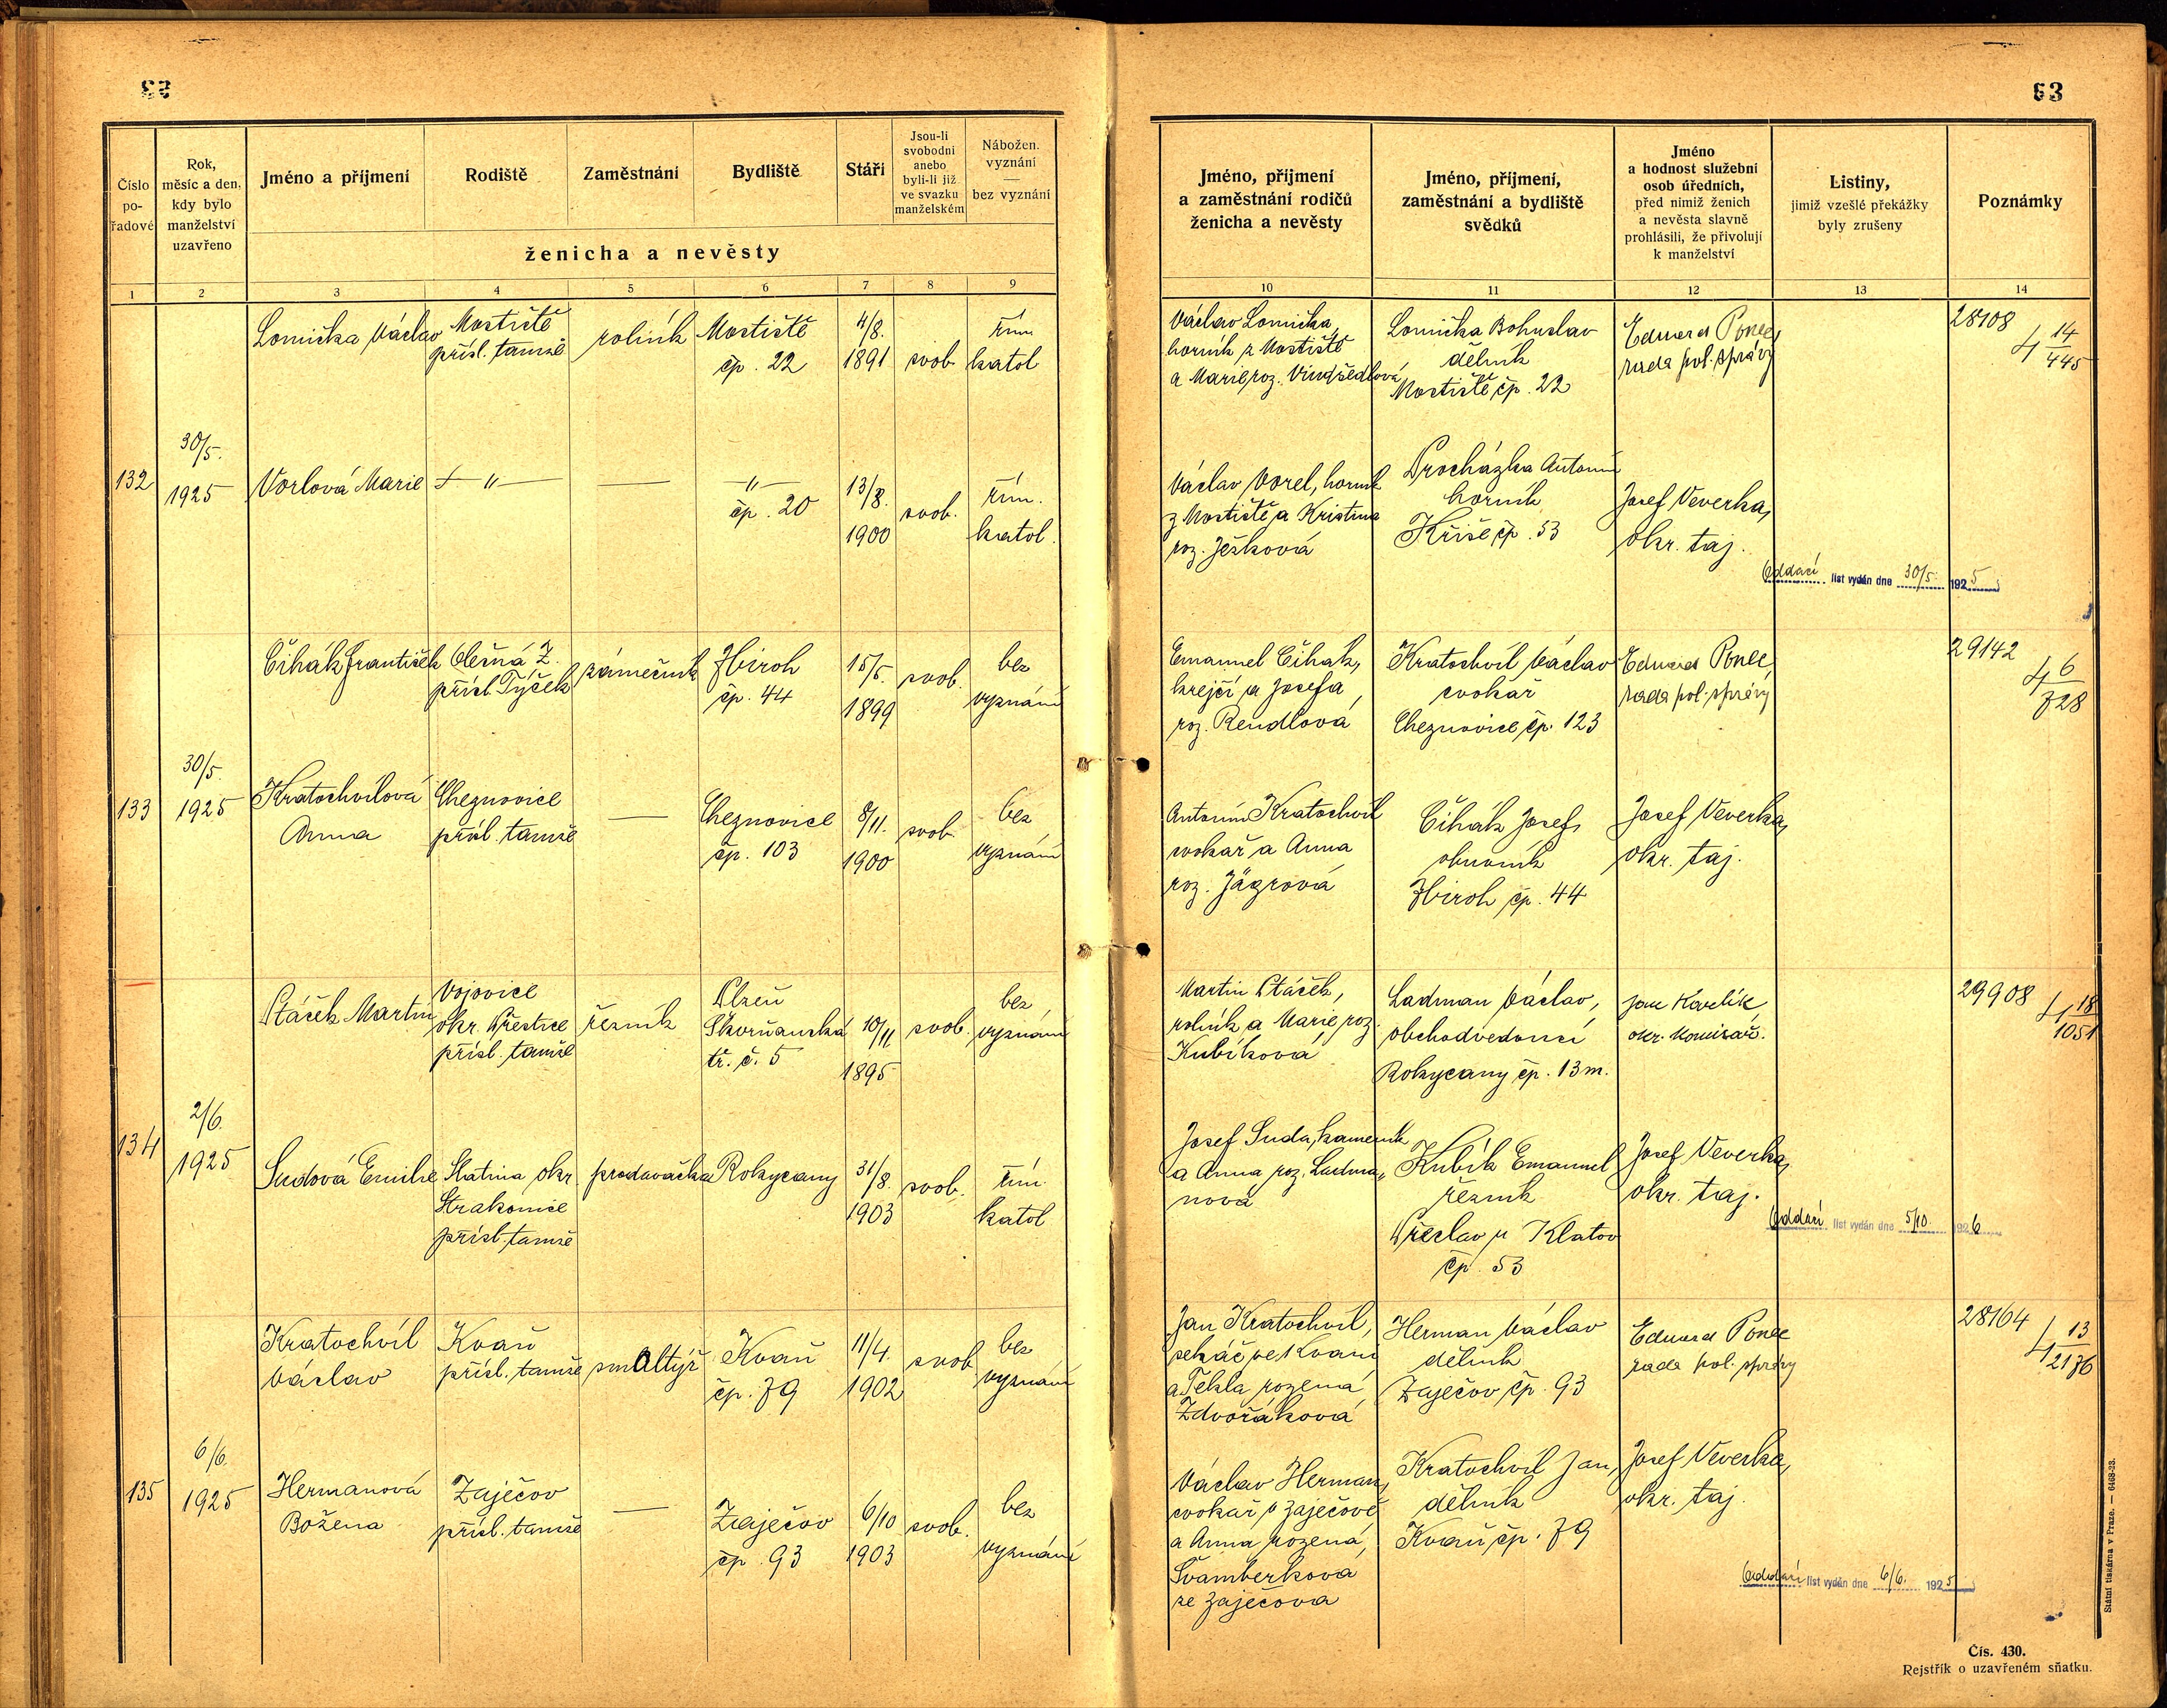 53
63
Číslo pořadové
Rok, měsíc a den, kdy bylo manželství uzavřeno
Jméno a příjmení
Rodiště
Zaměstnání
Bydliště
Stáří
Jsou-li svobodni anebo byli-li již ve svazku manželském
Nábožen. vyznání — bez vyznání
ženicha a nevěsty
1 2 3 4 5 6 7 8 9
Jméno, příjmení a zaměstnání rodičů ženicha a nevěsty
Jméno, příjmení, zaměstnání a bydliště svědků
Jméno a hodnost služební osob úředních, před nimiž ženich a nevěsta slavně prohlásili, že přivolují k manželství
Listiny, jimiž vzešlé překážky byly zrušeny
Poznámky
10 11 12 13 14
132
30/5.
1925
Lomička Václav
Mostiště
přísl. tamže
rolník
Mostiště
čp. 22
4/8.
1891
svob.
řím
katol
Václav Lomička,
horník z Mostiště
a Marie, roz. Vindšedlová
Lomička Bohuslav
dělník
Mostiště, čp. 22
Eduard Ponec,
rada pol. správy
28108
4 14/445
Vorlová Marie
— " —
—
— " —
čp. 20
13/8.
1900
svob.
řím.
katol.
Václav Vorel, horník
z Mostiště a Kristina
roz. Ješková
Procházka Antonín
horník
Kříše, čp. 53
Josef Veverka,
okr. taj.
Oddací list vydán dne 30/5. 1925
133
30/5.
1925
Čihák František
Olešná Z.
přísl. Týček
zámečník
Zbiroh
čp. 44
15/5.
1899
svob.
bez
vyznání
Emanuel Čihák,
krejčí a Josefa,
roz. Rendlová
Kratochvíl Václav
cvokař
Cheznovice, čp. 123
Eduard Ponec,
rada pol. správy
29142
4 6/728
Kratochvílová
Anna
Cheznovice
přísl. tamže
—
Cheznovice
čp. 103
8/11.
1900
svob.
bez
vyznání
Antonín Kratochvíl
cvokař a Anna
roz. Jägrová
Čihák Josef,
obuvník
Zbiroh, čp. 44
Josef Veverka,
okr. taj.
134
2/6.
1925
Ptáček Martin
Vojovice
okr. Přeštice
přísl. tamže
řezník
Plzeň
Škvrňanská
tř. č. 5
10/11
1895
svob.
bez
vyznání
Martin Ptáček,
rolník a Marie, roz.
Kubíková
Ladman Václav,
obchodvedoucí
Rokycany čp. 13 m.
Jan Kavlík
okr. komisař.
29908
4 18/1051
Sudová Emilie
Slatina, okr.
Strakonice
přísl. tamže
prodavačka
Rokycany
31/8.
1903
svob.
řím
katol
Josef Suda, kameník
a Anna, roz. Ladma„
nová
Kubík Emanuel
řezník
Předslav u Klatov
čp. 53
Josef Veverka,
okr. taj.
Oddací list vydán dne 5/10. 1926
135
6/6.
1925
Kratochvíl
Václav
Kvaň
přísl. tamže
smaltýř
Kvaň
čp. 79
11/4.
1902
svob.
bez
vyznání
Jan Kratochvíl,
sekáč ve Kvani
a Tekla rozená,
Zdvořáková
Herman Václav
dělník
Zaječov, čp. 93
Eduard Ponec
rada pol. správy
28164
4 13/2136
Hermanová
Božena
Zaječov
přísl. tamže
—
Zaječov
čp. 93
6/10
1903
svob.
bez
vyznání
Václav Herman,
cvokař v Zaječově
a Anna rozená,
Švamberková
ze Zaječova
Kratochvíl Jan,
dělník
Kvaň, čp. 79
Josef Veverka,
okr. taj.
Oddací list vydán dne 6/6. 1925
Státní tiskárna v Praze. — 6468-23.
Čís. 430.
Rejstřík o uzavřeném sňatku.